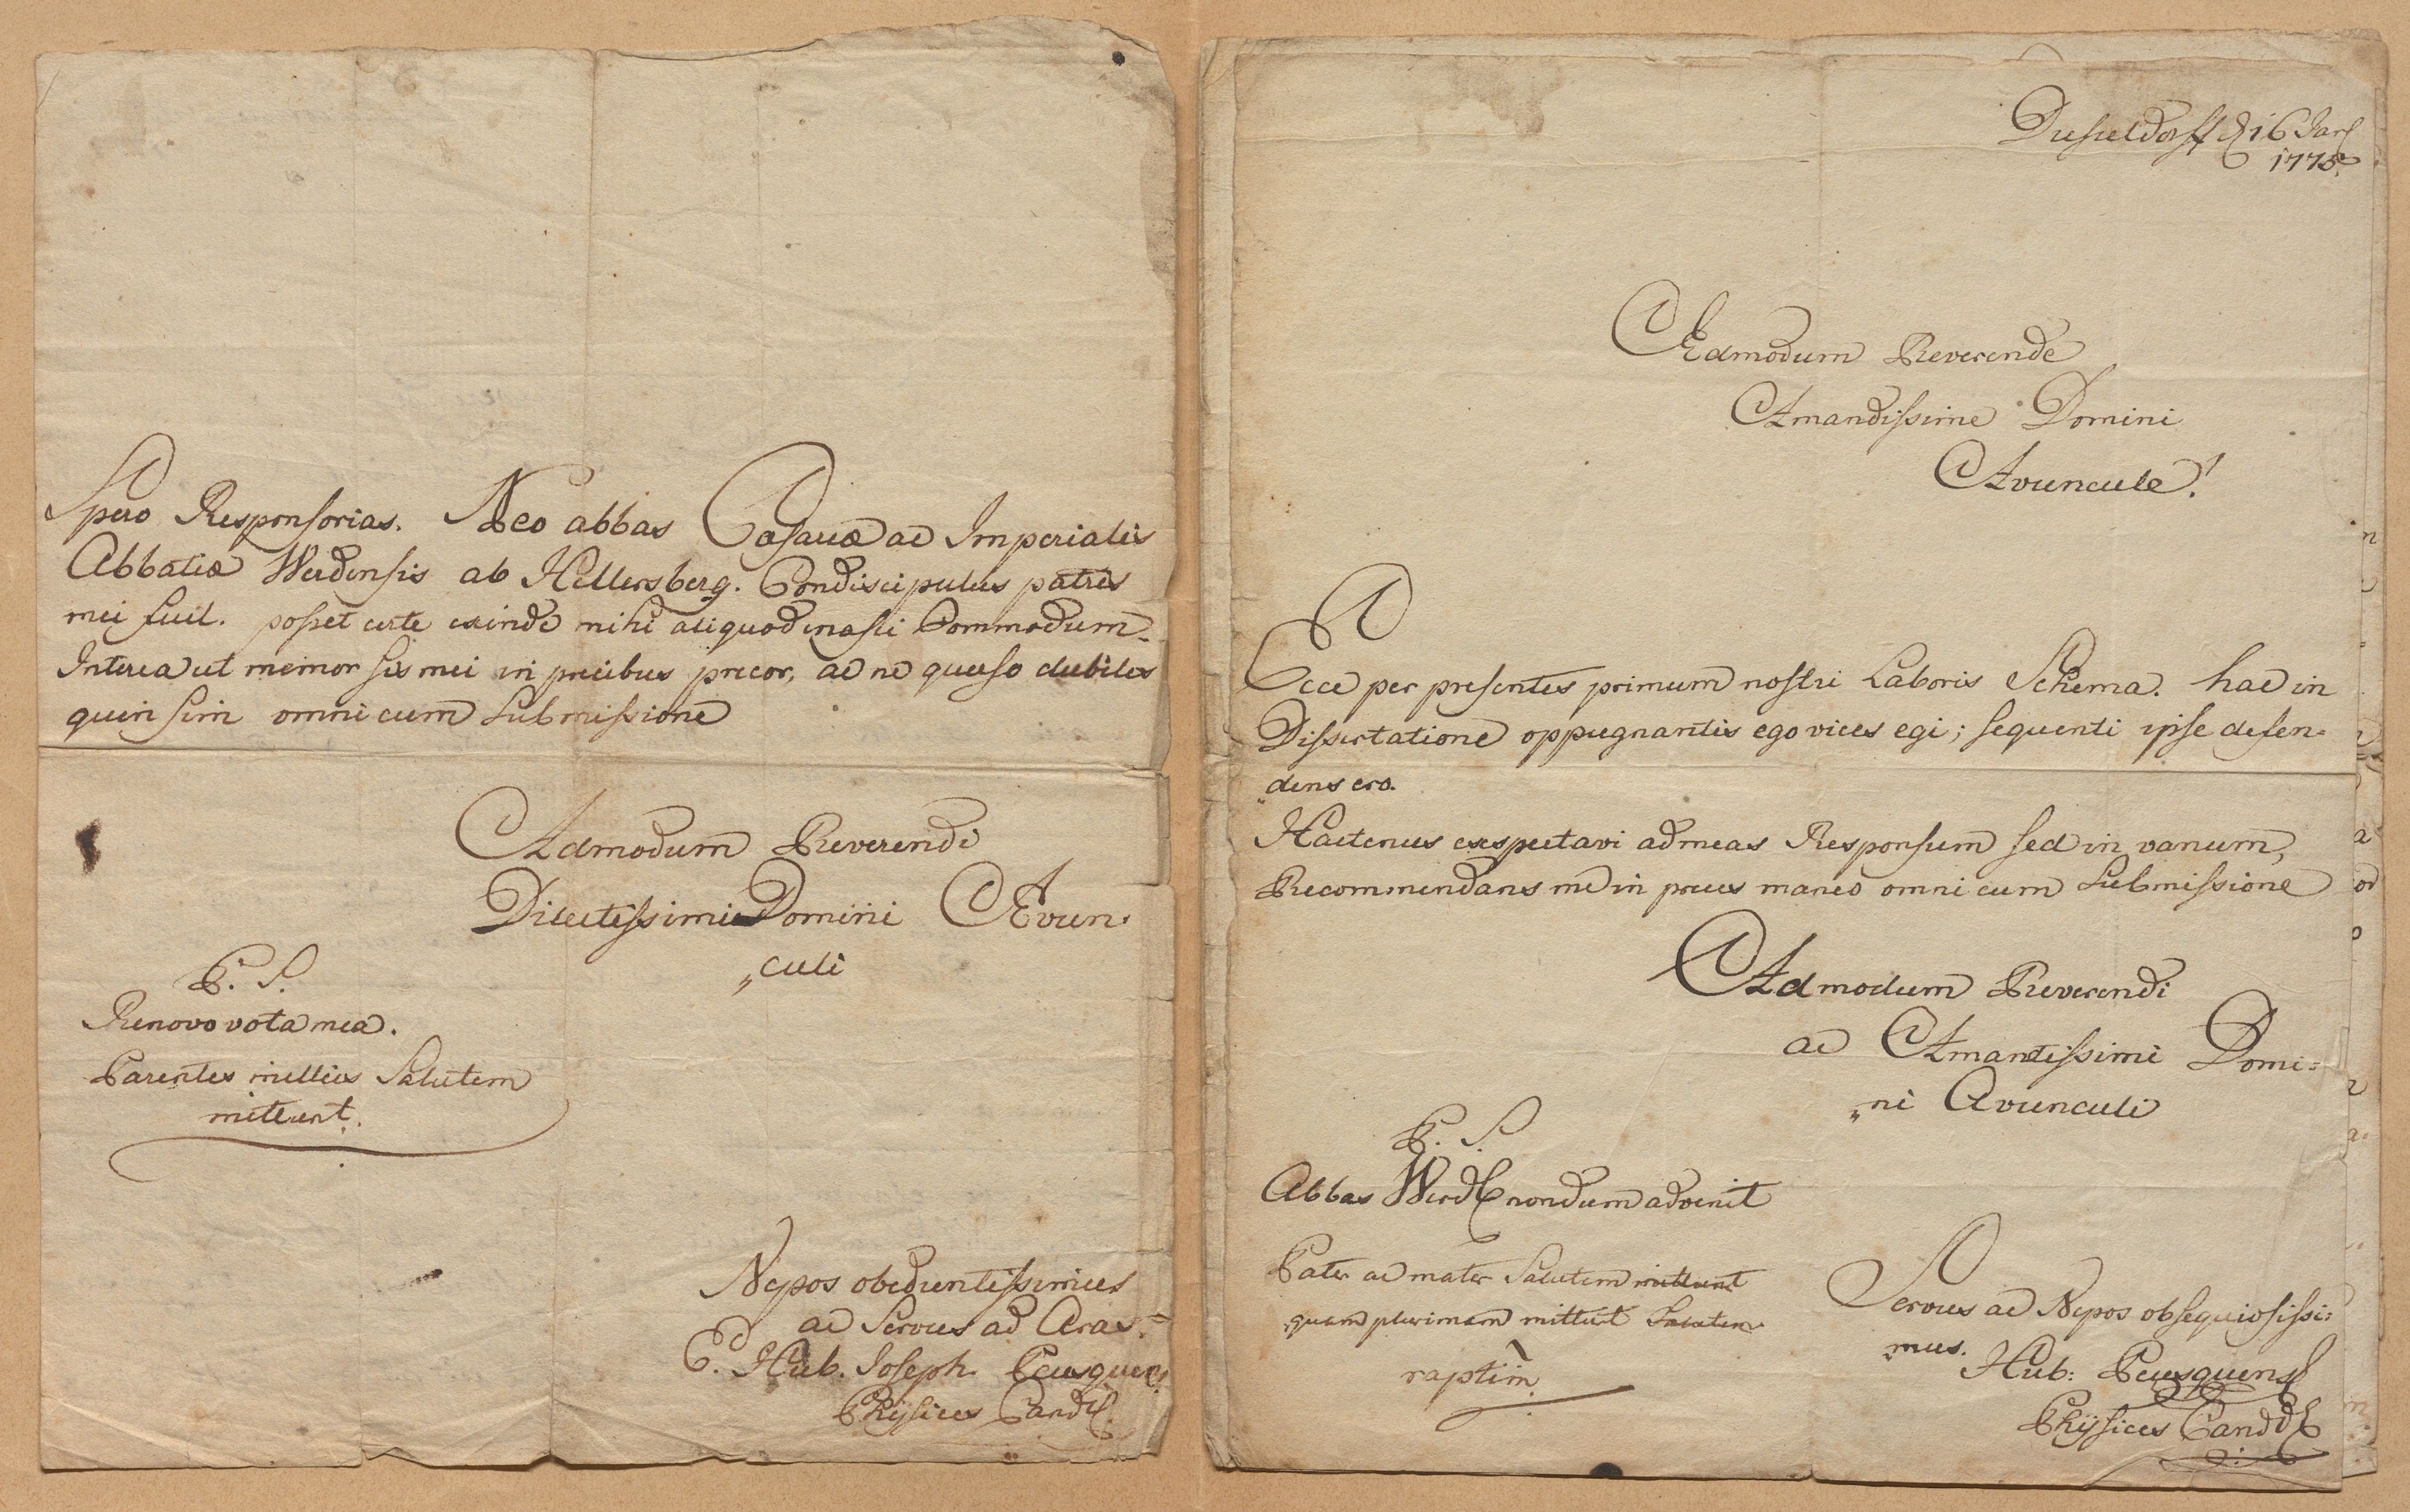 Spero Responsorias. Neo abbas Cæsareæ ac Imperialis
Abbatiæ Werdensis ab Hellersberg. Condiscipulus patris
mei fuit. posset certe exinde mihi aliquod nasci Commodum.
Interea ut memor sis mei in precibus precor, ac ne quæso dubites
quin sim omni cum Submissione
Admodum Reverendi
Dilectissimi Domini Avun-
„culi
P. S.
Renovo vota mea.
Parentes millies Salutem
mittunt.
Nepos obedientissimus
ac Servus ad Aras
P. Hub. Joseph Peusquens
Phÿsices Cand.
Dusseldorff d 16 Jan
1775
Admodum Reverende
Amandissime Domini
Avuncule!
Ecce per presentes primum nostri Laboris Schema. hac in
Dissertatione oppugnantis ego vices egi; sequenti ipse defen-
„dens ero.
Hactenus exspectavi ad meas Responsum sed in vanum,
Recommendans me in preces maneo omni cum Submissione
Admodum Reverendi
ac Amantissimi Domi-
„ni Avunculi
P. S.
Abbas Werd nondum advenit
Pater ac mater Salutem mittunt
quam plurimam mittunt Salutem
raptim
Servus ac Nepos obsequiosissi-
„mus.
Hub: Peusquens
Phÿsices Candd